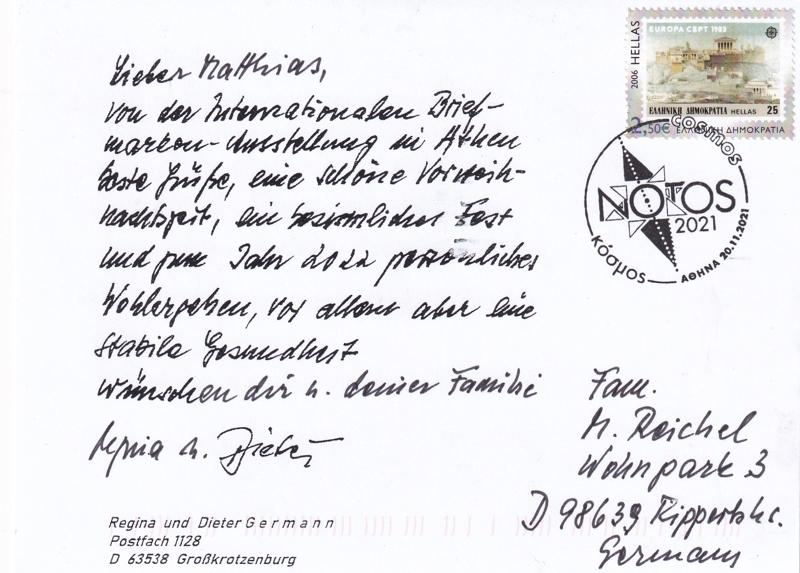 Lieber Matthias,
von der Internationalen Brief-
marken-Ausstellung in Athen
beste Grüße, eine schöne Vorweih-
nachtszeit, ein besinnliches Fest
und zum Jahr 2022 persönliches
Wohlergehen, vor allem aber eine
stabile Gesundheit
wünschen dir u. deiner Familie
Regina u. Dieter
Regina und Dieter Germann
Postfach 1128
D 63538 Großkrotzenburg
2006 HELLAS
EUROPA CEPT 1983
ΕΛΛΗΝΙΚΗ ΔΗΜΟΚΡΑΤΙΑ HELLAS 25
2,50€ ΕΛΛΗΝΙΚΗ ΔΗΜΟΚΡΑΤΙΑ
cosmos
NOTOS
2021
κόσμος
ΑΘΗΝΑ 20.11.2021
Fam.
M. Reichel
Wohnpark 3
D 98639 Rippershs.
Germany